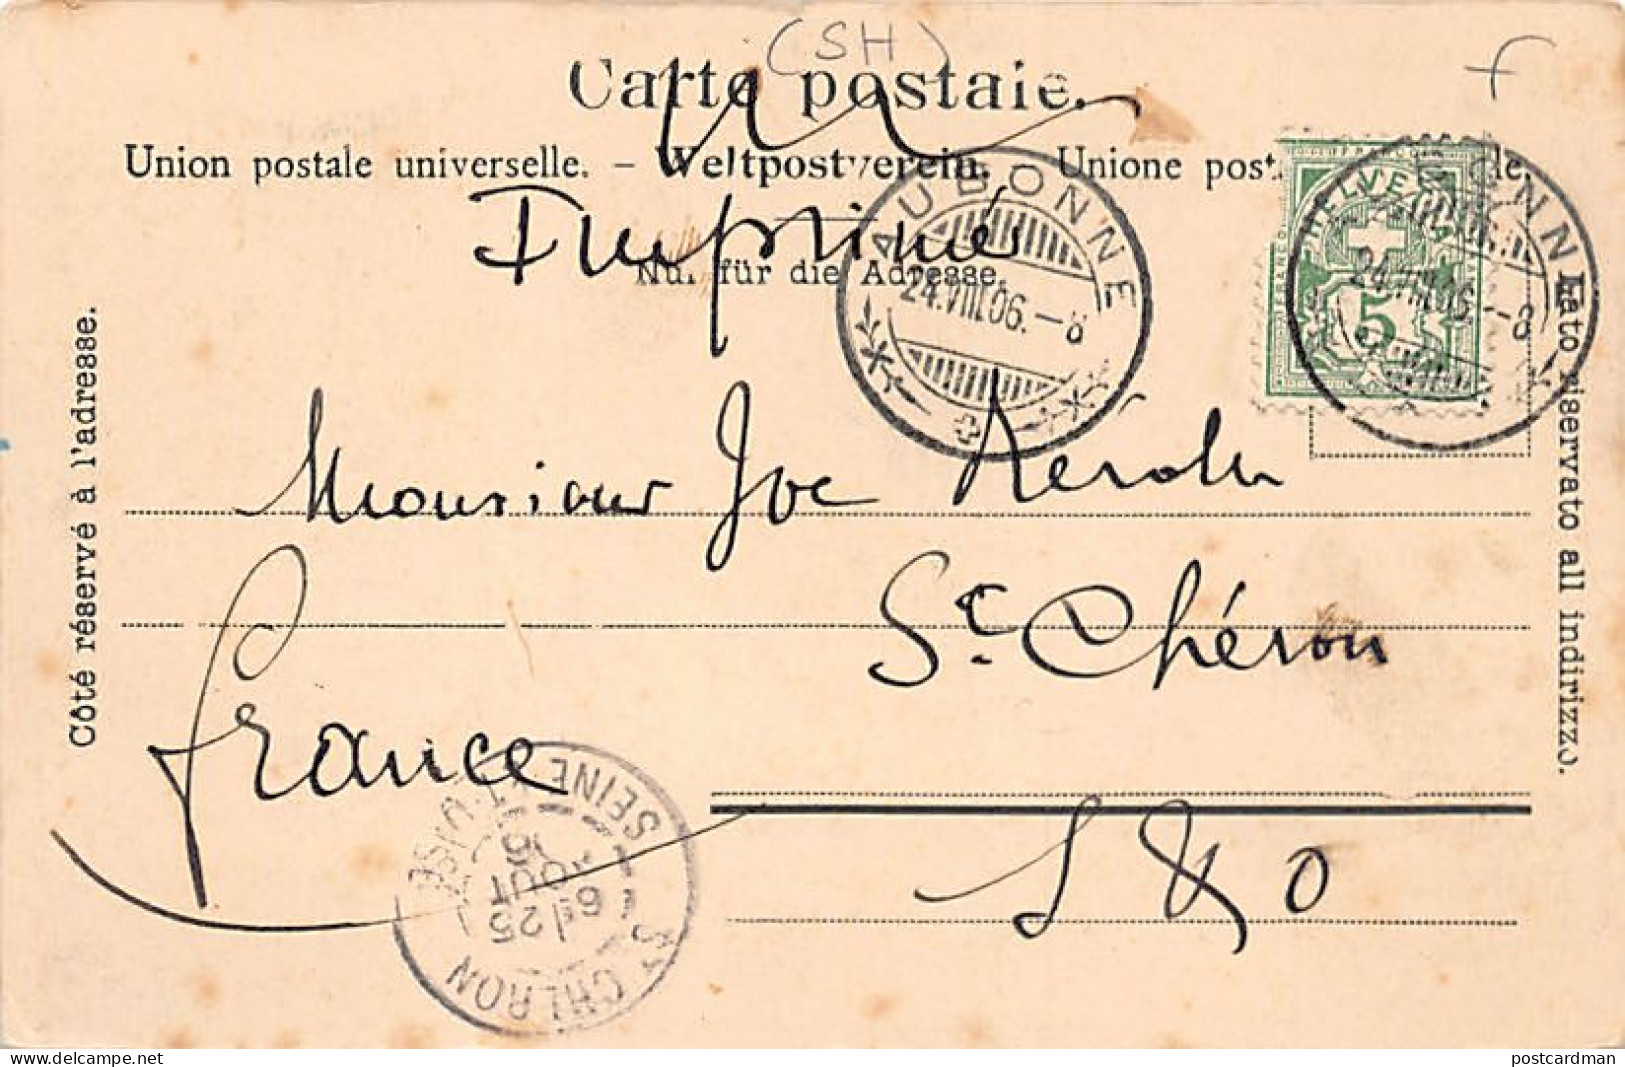 (SH)
Carte postale.
Union postale universelle. – Weltpostverein. Unione post
Imprimé
Nur für die Adresse.
AUBONNE
24.VIII.06. – 8
HELVETIA
FRANCO
5
24.VIII.06. – 8
Côté réservé à l'adresse.
Lato riservato all indirizzo.
Monsieur
St. Chéron
France
S & O
ST CHERON
SEINE-ET-OISE
25
AOUT
06
postcardman